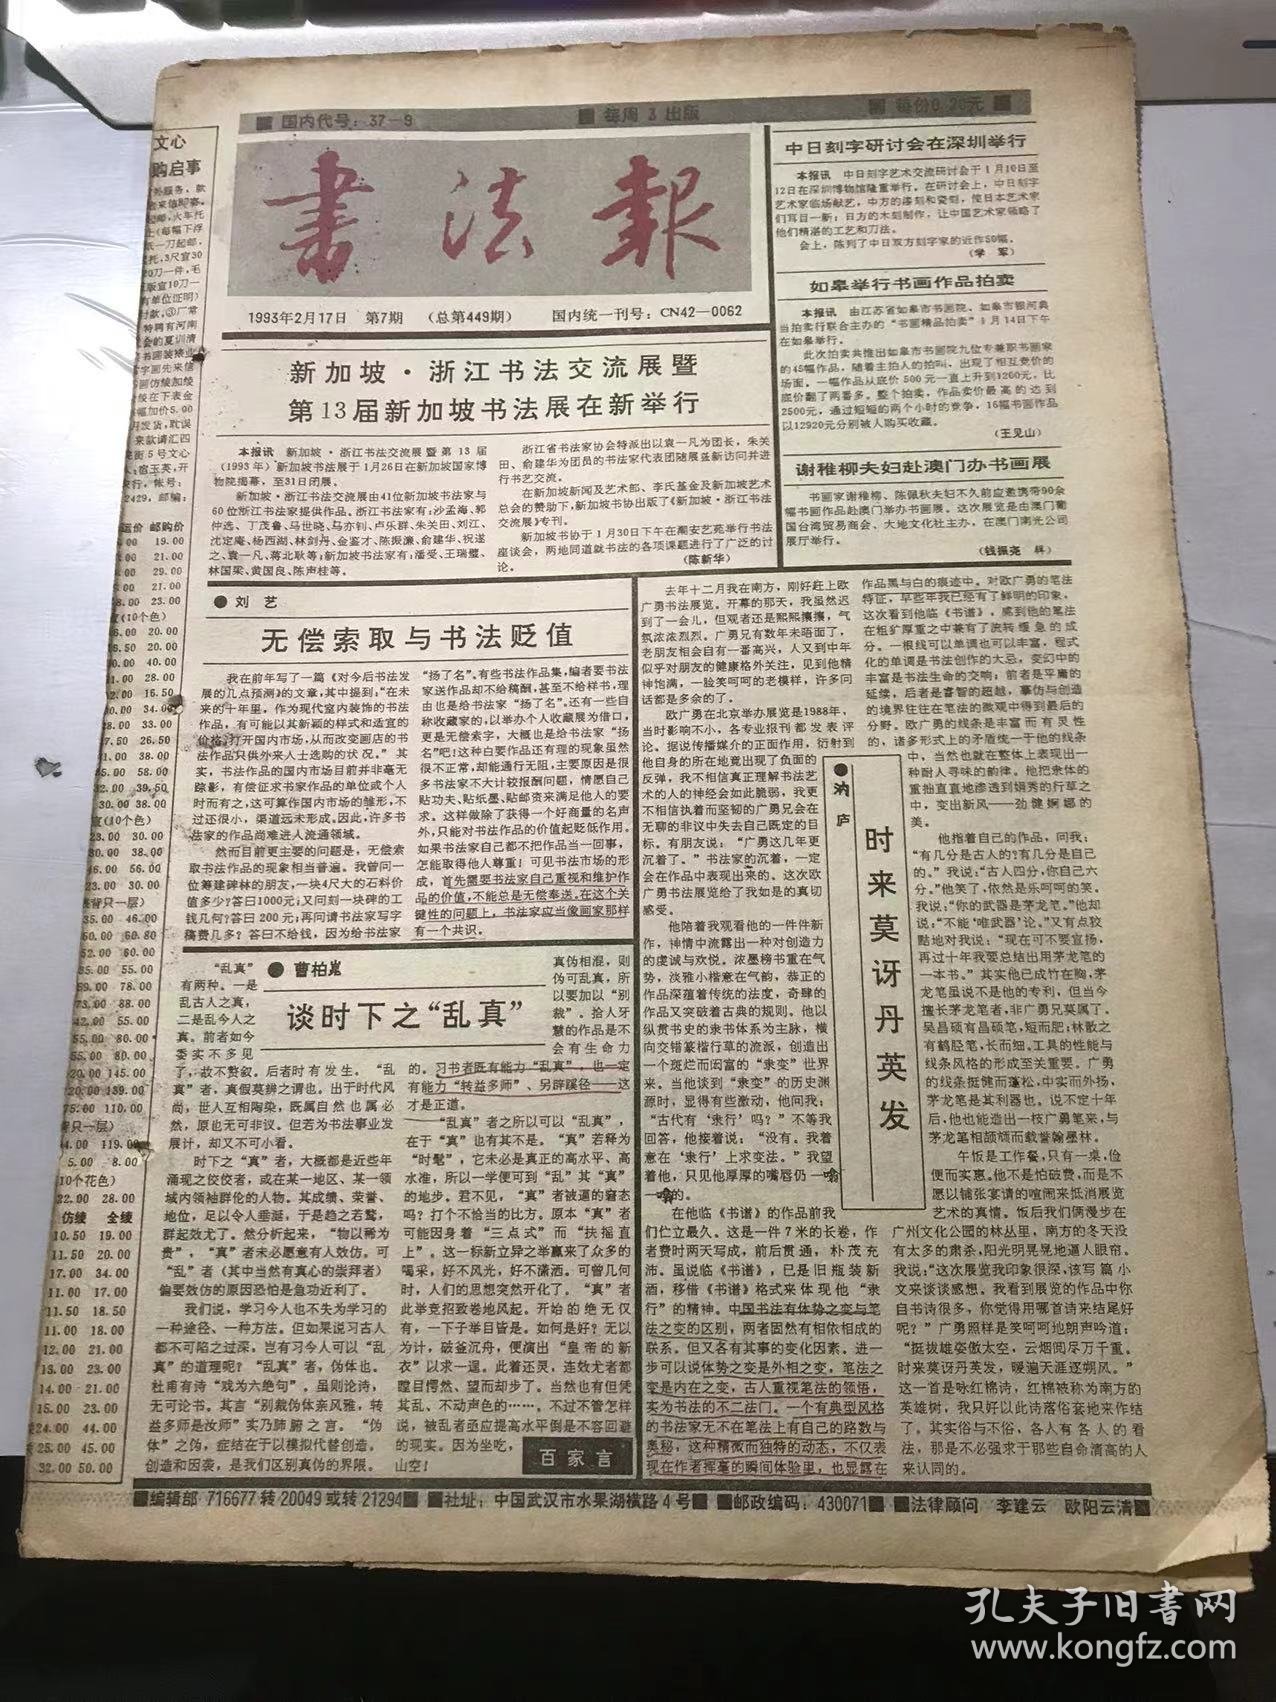 国内代号：37－9
每周3出版
每份0.20元
書法報
1993年2月17日 第7期 （总第449期） 国内统一刊号：CN42－0062
新加坡·浙江书法交流展暨
第13届新加坡书法展在新举行
本报讯 新加坡·浙江书法交流展暨第13届
（1993年）新加坡书法展于1月26日在新加坡国家博
物院揭幕，至31日闭展。
新加坡·浙江书法交流展由41位新加坡书法家与
60位浙江书法家提供作品。浙江书法家有：沙孟海、郭
仲选、丁茂鲁、马世晓、马亦钊、卢乐群、朱关田、刘江、
沈定庵、杨西湖、林剑丹、金鉴才、陈振濂、俞建华、祝遂
之、袁一凡、蒋北耿等；新加坡书法家有：潘受、王瑞璧、
林国梁、黄国良、陈声桂等。
浙江省书法家协会特派出以袁一凡为团长，朱关
田、俞建华为团员的书法家代表团随展至新访问并进
行书艺交流。
在新加坡新闻及艺术部、李氏基金及新加坡艺术
总会的赞助下，新加坡书协出版了《新加坡·浙江书法
交流展》专刊。
新加坡书协于1月30日下午在潮安艺苑举行书法
座谈会，两地同道就书法的各项课题进行了广泛的讨
论。 （陈新华）
中日刻字研讨会在深圳举行
本报讯 中日刻字艺术交流研讨会于1月10日至
12日在深圳博物馆隆重举行。在研讨会上，中日刻字
艺术家临场献艺，中方的漆刻和瓷刻，使日本艺术家
们耳目一新；日方的木刻制作，让中国艺术家领略了
他们精湛的工艺和刀法。
会上，陈列了中日双方刻字家的近作50幅。
（学 军）
如皋举行书画作品拍卖
本报讯 由江苏省如皋市书画院、如皋市银河典
当拍卖行联合主办的“书画精品拍卖”1月14日下午
在如皋举行。
此次拍卖共推出如皋市书画院九位专兼职书画家
的45幅作品，随着主拍人的拍叫，出现了相互竞价的
场面。一幅作品从底价500元一直上升到1200元，比
底价翻了两番多。整个拍卖，作品卖价最高的达到
2500元，通过短短的两个小时的竞争，16幅书画作品
以12920元分别被人购买收藏。
（王见山）
谢稚柳夫妇赴澳门办书画展
书画家谢稚柳、陈佩秋夫妇不久前应邀携带90余
幅书画作品赴澳门举办书画展。这次展览是由澳门葡
国台湾贸易商会、大地文化社主办，在澳门南光公司
展厅举行。
●刘 艺
无偿索取与书法贬值
我在前年写了一篇《对今后书法发
展的几点预测》的文章，其中提到，“在未
来的十年里，作为现代室内装饰的书法
作品，有可能以其新颖的样式和适宜的
价格，打开国内市场，从而改变画店的书
法作品只供外来人士选购的状况。”其
实，书法作品的国内市场目前并非毫无
踪影，有偿征求书家作品的单位或个人
时而有之，这可算作国内市场的雏形，不
过还很小，渠道远未形成。因此，许多书
法家的作品尚难进入流通领域。
然而目前更主要的问题是，无偿索
取书法作品的现象相当普遍。我曾问一
位筹建碑林的朋友，一块4尺大的石料价
值多少？答曰1000元；又问刻一块碑的工
钱几何？答曰200元；再问请书法家写字
稿费几多？答曰不给钱，因为给书法家
“扬了名”。有些书法作品集，编者要书法
家送作品却不给稿酬，甚至不给样书，理
由也是给书法家“扬了名”。还有一些自
称收藏家的，以举办个人收藏展为借口，
更是无偿索字，大概也是给书法家“扬
名”吧！这种白要作品还有理的现象虽然
很不正常，却能通行无阻，主要原因是很
多书法家不大计较报酬问题，情愿自己
贴功夫、贴纸墨、贴邮资来满足他人的要
求。这样做除了获得一个好商量的名声
外，只能对书法作品的价值起贬低作用。
如果书法家自己都不把作品当一回事，
怎能取得他人尊重！可见书法市场的形
成，首先需要书法家自己重视和维护作
品的价值，不能总是无偿奉送。在这个关
键性的问题上，书法家应当像画家那样
有一个共识。
●曹柏崑
谈时下之“乱真”
“乱真”
有两种。一是
乱古人之真，
二是乱今人之
真。前者如今
委实不多见
了，故不赘叙。后者时有发生。“乱
真”者，真假莫辨之谓也。出于时代风
尚，世人互相陶染，既属自然也属必
然，原也无可非议。但若为书法事业发
展计，却又不可小看。
时下之“真”者，大概都是近些年
涌现之佼佼者，或在某一地区、某一领
域内领袖群伦的人物。其成绩、荣誉、
地位，足以令人垂涎，于是趋之若鹜，
群起效尤了。然分析起来，“物以稀为
贵”，“真”者未必愿意有人效仿。可
“乱”者（其中当然有真心的崇拜者）
偏要效仿的原因恐怕是急功近利了。
我们说，学习今人也不失为学习的
一种途径、一种方法。但如果说习古人
都不可陷之过深，岂有习今人可以“乱
真”的道理呢？“乱真”者，伪体也。
杜甫有诗“戏为六绝句”。虽则论诗，
无可论书。其言“别裁伪体亲风雅，转
益多师是汝师”实乃肺腑之言。“伪
体”之伪，症结在于以模拟代替创造，
创造和因袭，是我们区别真伪的界限。
真伪相混，则
伪可乱真，所
以要加以“别
裁”。拾人牙
慧的作品是不
会有生命力
的。习书者既有能力“乱真”，也一定
有能力“转益多师”、另辟蹊径——这
才是正道。
“乱真”者之所以可以“乱真”，
在于“真”也有其不是。“真”若释为
“时髦”，它未必是真正的高水平、高
水准，所以一学便可到“乱”其“真”
的地步。君不见，“真”者被逼的窘态
吗？打个不恰当的比方。原本“真”者
可能因身着“三点式”而“扶摇直
上”。这一标新立异之举赢来了众多的
喝采，好不风光，好不潇洒。可曾几何
时，人们的思想突然开化了。“真”者
此举竞招致卷地风起。开始的绝无仅
有，一下子举目皆是。如何是好？无以
为计，破釜沉舟，便演出“皇帝的新
衣”以求一逞。此着还灵，连效尤者都
瞠目愕然、望而却步了。当然也有但凭
其乱、不动声色的……。不过不管怎样
说，被乱者亟应提高水平倒是不容回避
的现实。因为坐吃，
山空！
百家言
去年十二月我在南方，刚好赶上欧
广勇书法展览。开幕的那天，我虽然迟
到了一会儿，但观者还是熙熙攘攘，气
氛浓浓烈烈。广勇兄有数年未晤面了，
老朋友相会自有一番高兴，人又到中年
似乎对朋友的健康格外关注，见到他精
神饱满，一脸笑呵呵的老模样，许多问
话都是多余的了。
欧广勇在北京举办展览是1988年，
当时影响不小，各专业报刊都发表评
论。据说传播媒介的正面作用，衍射到
他自身的所在地竟出现了负面的
反弹，我不相信真正理解书法艺
术的人的神经会如此脆弱，我更
不相信执着而坚韧的广勇兄会在
无聊的非议中失去自己既定的目
标。有朋友说：“广勇这几年更
沉着了。”书法家的沉着，一定
会在作品中表现出来的。这次欧
广勇书法展览给了我如是的真切
感受。
他陪着我观看他的一件件新
作，神情中流露出一种对创造力
的虔诚与欢悦。浓墨榜书重在气
势，淡雅小楷意在气韵，恭正的
作品深蕴着传统的法度，奇肆的
作品又突破着古典的规则。他以
纵贯书史的隶书体系为主脉，横
向交错篆楷行草的流派，创造出
一个斑烂而闳富的“隶变”世界
来。当他谈到“隶变”的历史渊
源时，显得有些激动，他问我：
“古代有‘隶行’吗？”不等我
回答，他接着说：“没有。我着
意在‘隶行’上求变法。”我望
着他，只见他厚厚的嘴唇仍一翕
一翕的。
在他临《书谱》的作品前我
们伫立最久。这是一件7米的长卷，作
者费时两天写成，前后贯通，朴茂充
沛。虽说临《书谱》，已是旧瓶装新
酒，移借《书谱》格式来体现他“隶
行”的精神。中国书法有体势之变与笔
法之变的区别，两者固然有相依相成的
联系。但又各有其事的变化因素。进一
步可以说体势之变是外相之变，笔法之
变是内在之变，古人重视笔法的领悟，
实为书法的不二法门。一个有典型风格
的书法家无不在笔法上有自己的路数与
奥秘，这种精微而独特的动态，不仅表
现在作者挥毫的瞬间体验里，也显露在
作品黑与白的痕迹中。对欧广勇的笔法
特征，早些年我已经有了鲜明的印象，
这次看到他临《书谱》，感到他的笔法
在粗犷厚重之中兼有了流转缓急的成
分。一根线可以单调也可以丰富，程式
化的单调是书法创作的大忌，变幻中的
丰富是书法生命的交响；前者是平庸的
延续，后者是睿智的超越，摹仿与创造
的境界往往在笔法的微观中得到最后的
分野。欧广勇的线条是丰富而有灵性
的，诸多形式上的矛盾统一于他的线条
中，当然也就在整体上表现出一
种耐人寻味的韵律。他把隶体的
重拙直直地渗透到娟秀的行草之
中，变出新风——劲健婀娜的
美。
他指着自己的作品，问我：
“有几分是古人的？有几分是自己
的。”我说：“古人四分，你自己六
分。”他笑了，依然是乐呵呵的笑。
我说：“你的武器是茅龙笔。”他却
说：“不能‘唯武器’论。”又有点狡
黠地对我说：“现在可不要宣扬，
再过十年我要总结出用茅龙笔的
一本书。”其实他已成竹在胸，茅
龙笔虽说不是他的专利，但当今
擅长茅龙笔者，非广勇兄莫属了。
吴昌硕有昌硕笔，短而肥；林散之
有鹤胫笔，长而细。工具的性能与
线条风格的形成至关重要。广勇
的线条挺健而蓬松，中实而外扬，
茅龙笔是其利器也。说不定十年
后，他也能造出一枝广勇笔来，与
茅龙笔相颉颃而载誉翰墨林。
午饭是工作餐，只有一桌，俭
便而实惠。他不是怕破费，而是不
愿以铺张宴请的喧闹来抵消展览
艺术的真情。饭后我们俩漫步在
广州文化公园的林丛里，南方的冬天没
有太多的肃杀，阳光明晃晃地逼人眼帘。
我说：“这次展览我印象很深，该写篇小
文来谈谈感想。我看到展览的作品中你
自书诗很多，你觉得用哪首诗来结尾好
呢？”广勇照样是笑呵呵地朗声吟道：
“挺拔雄姿傲太空，云烟阅尽万千重。
时来莫讶丹英发，暖遍天涯逐朔风。”
这一首是咏红棉诗，红棉被称为南方的
英雄树，我只好以此诗落俗套地来作结
了。其实俗与不俗，各人有各人的看
法，那是不必强求于那些自命清高的人
来认同的。
时来莫讶丹英发
编辑部 716677转20049或转21294 社址：中国武汉市水果湖横路4号 邮政编码：430071 法律顾问 李建云 欧阳云清
孔夫子旧书网
www.kongfz.com